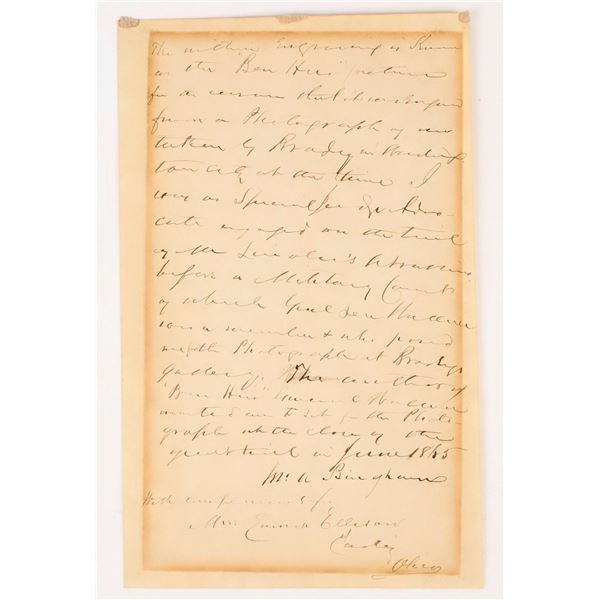 The within Engraving is Known
as the "Ben Hur" picture
for a reason that it is engraved
from a Photograph of me
taken by Brady in Washing
ton City at the time I
was as Special Judge Advo-
cate engaged on the trial
of Mr Lincoln's Assassins
before a Military Court
of which Genl Lew Wallace
was a member & who posed
me for the Photograph at Brady's
gallery. The author of
"Ben Hur" General Wallace
wanted me to sit for the Photo-
graph at the close of the
great trial in June 1865
Jno A Bingham
With compliments for
Miss Emma Ellison
Cadiz
Ohio